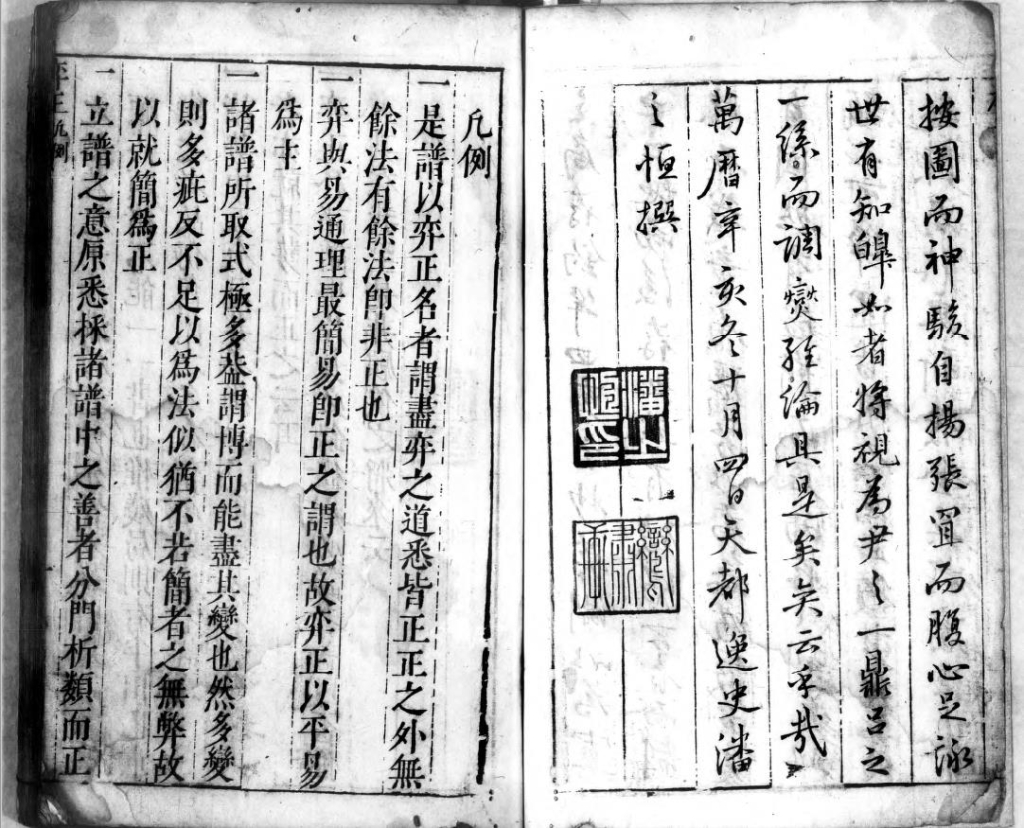 按圖而神駿自揚張罝而腹心足詠
世有知皥如者將視為尹之一鼎呂之
一絲而調爕經綸具是矣矣云乎哉
萬曆辛亥冬十月四日天都逸史潘
之恒撰
潘之恒印
鸞嘯
凡例
一是譜以弈正名者謂盡弈之道悉皆正正之外無
餘法有餘法卽非正也
一弈與易通理最簡易卽正之謂也故弈正以平易
爲主
一諸譜所取式極多葢謂博而能盡其變也然多變
則多疵反不足以爲法似猶不若簡者之無弊故
以就簡爲正
一立譜之意原悉採諸譜中之善者分門析類而正
弈正 凡例